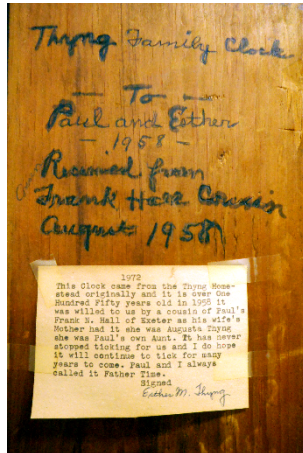 Thyng Family Clock
— To —
Paul and Esther
- 1958 -
Received from
Frank Hall Cousin
August 1958
1972
This Clock came from the Thyng Home-
stead originally and it is over One
Hundred Fifty years old in 1958 it
was willed to us by a cousin of Paul's
Frank N. Hall of Exeter as his wife's
Mother had it she was Augusta Thyng
she was Paul's own Aunt. It has never
stopped ticking for us and I do hope
it will continue to tick for many
years to come. Paul and I always
called it Father Time.
Signed
Esther M. Thyng